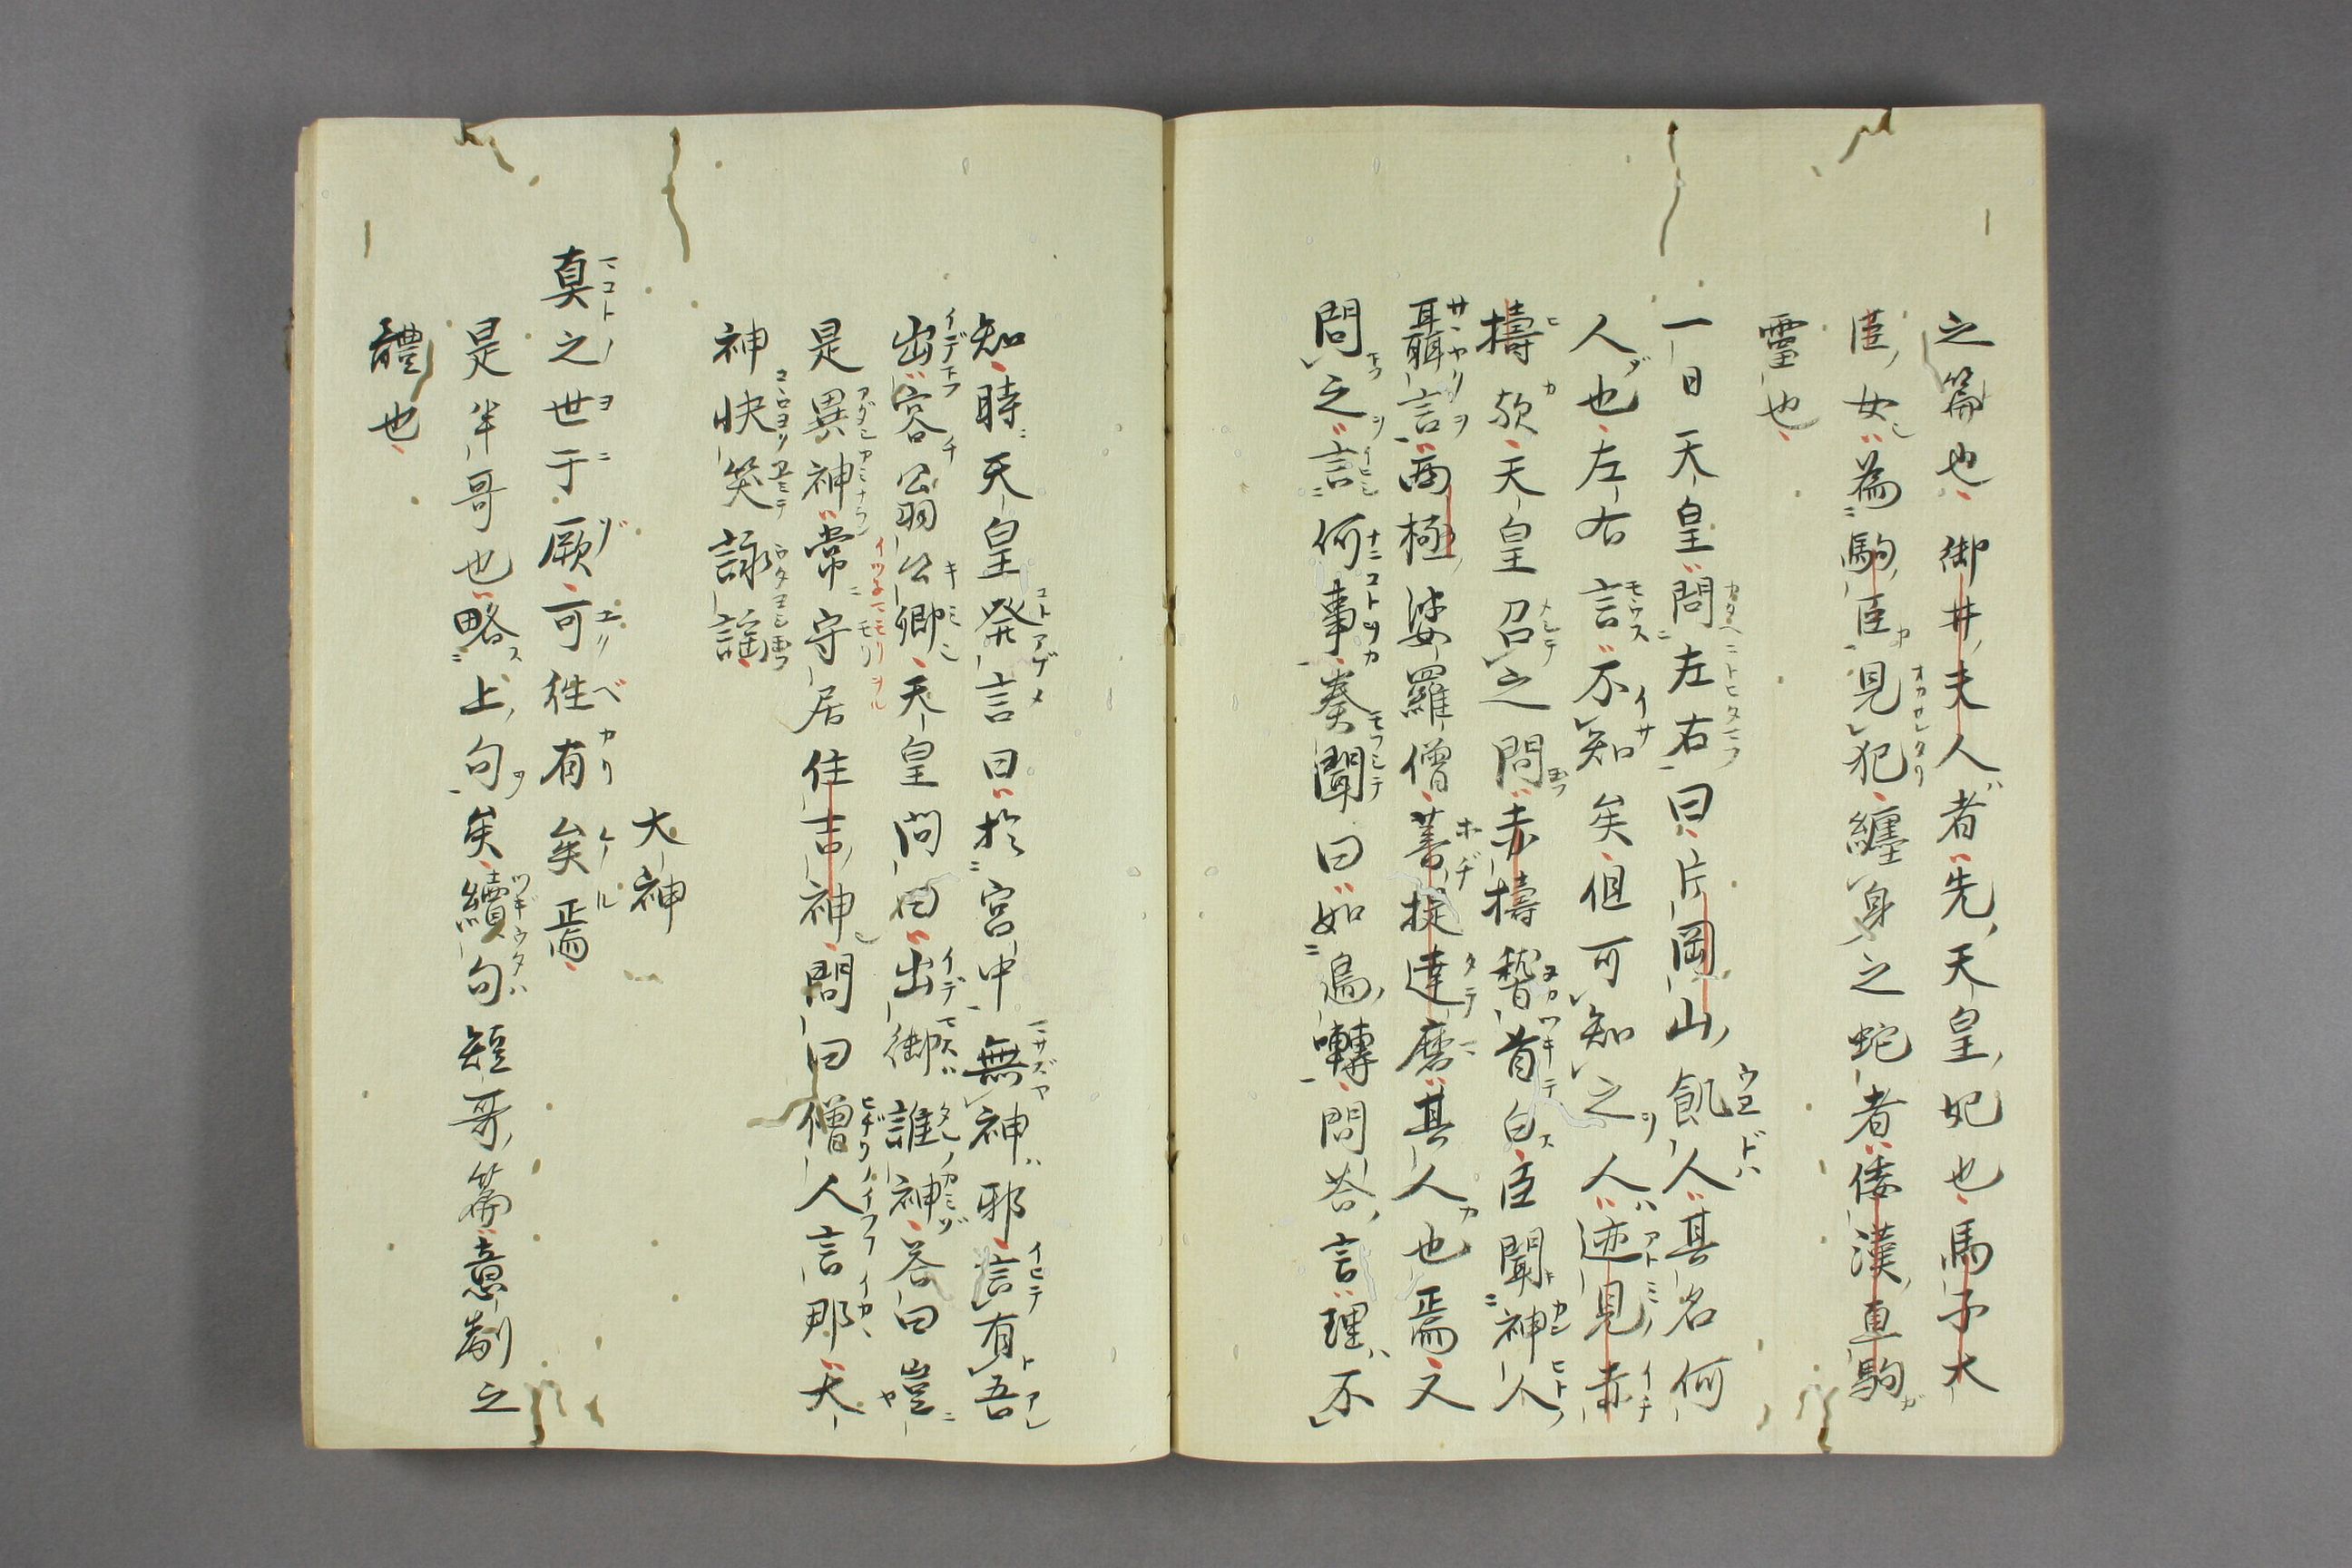 之篇也御井夫人者先天皇妃也馬子大
臣女為駒臣見犯纏身之蛇者倭漢直駒
靈也
一日天皇問左右曰片岡山飢人其名何
人也左右言不知矣但可知之人迹見赤
檮歟天皇召之問赤檮稽首白臣聞神人
聶言西極婆羅僧菩提達磨其人也焉又
問之言何事奏聞曰如鳥囀問荅言理不
知時天皇発言曰於宮中無神邪言有吾
出容公羽公卿天皇問曰出御誰神荅曰豈
是異神常守居住吉神問曰僧人言那天
神快笑詠謡
大神
真之世于厥可往有矣焉
是半哥也略上句矣續句短哥篇意制之
體也